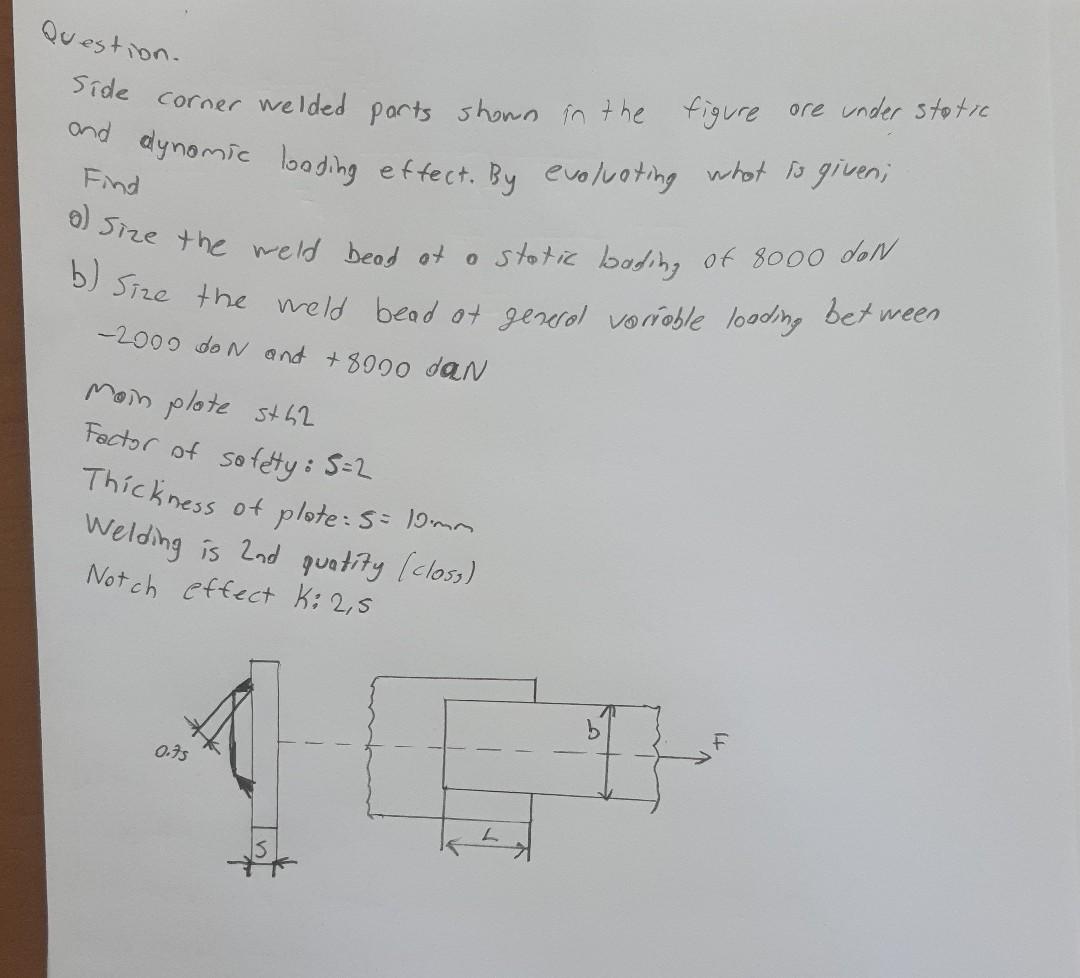 Question.
Side corner welded parts shown in the figure are under static
and dynamic loading effect. By evaluating what is given;
Find
a) Size the weld bead at a static loading of 8000 daN
b) Size the weld bead at general variable loading between
-2000 daN and +8000 daN
Main plate st42
Factor of safetty: S=2
Thickness of plate: s= 10mm
Welding is 2nd quatity (class)
Notch effect K: 2,5
0.7s
b
F
L
S